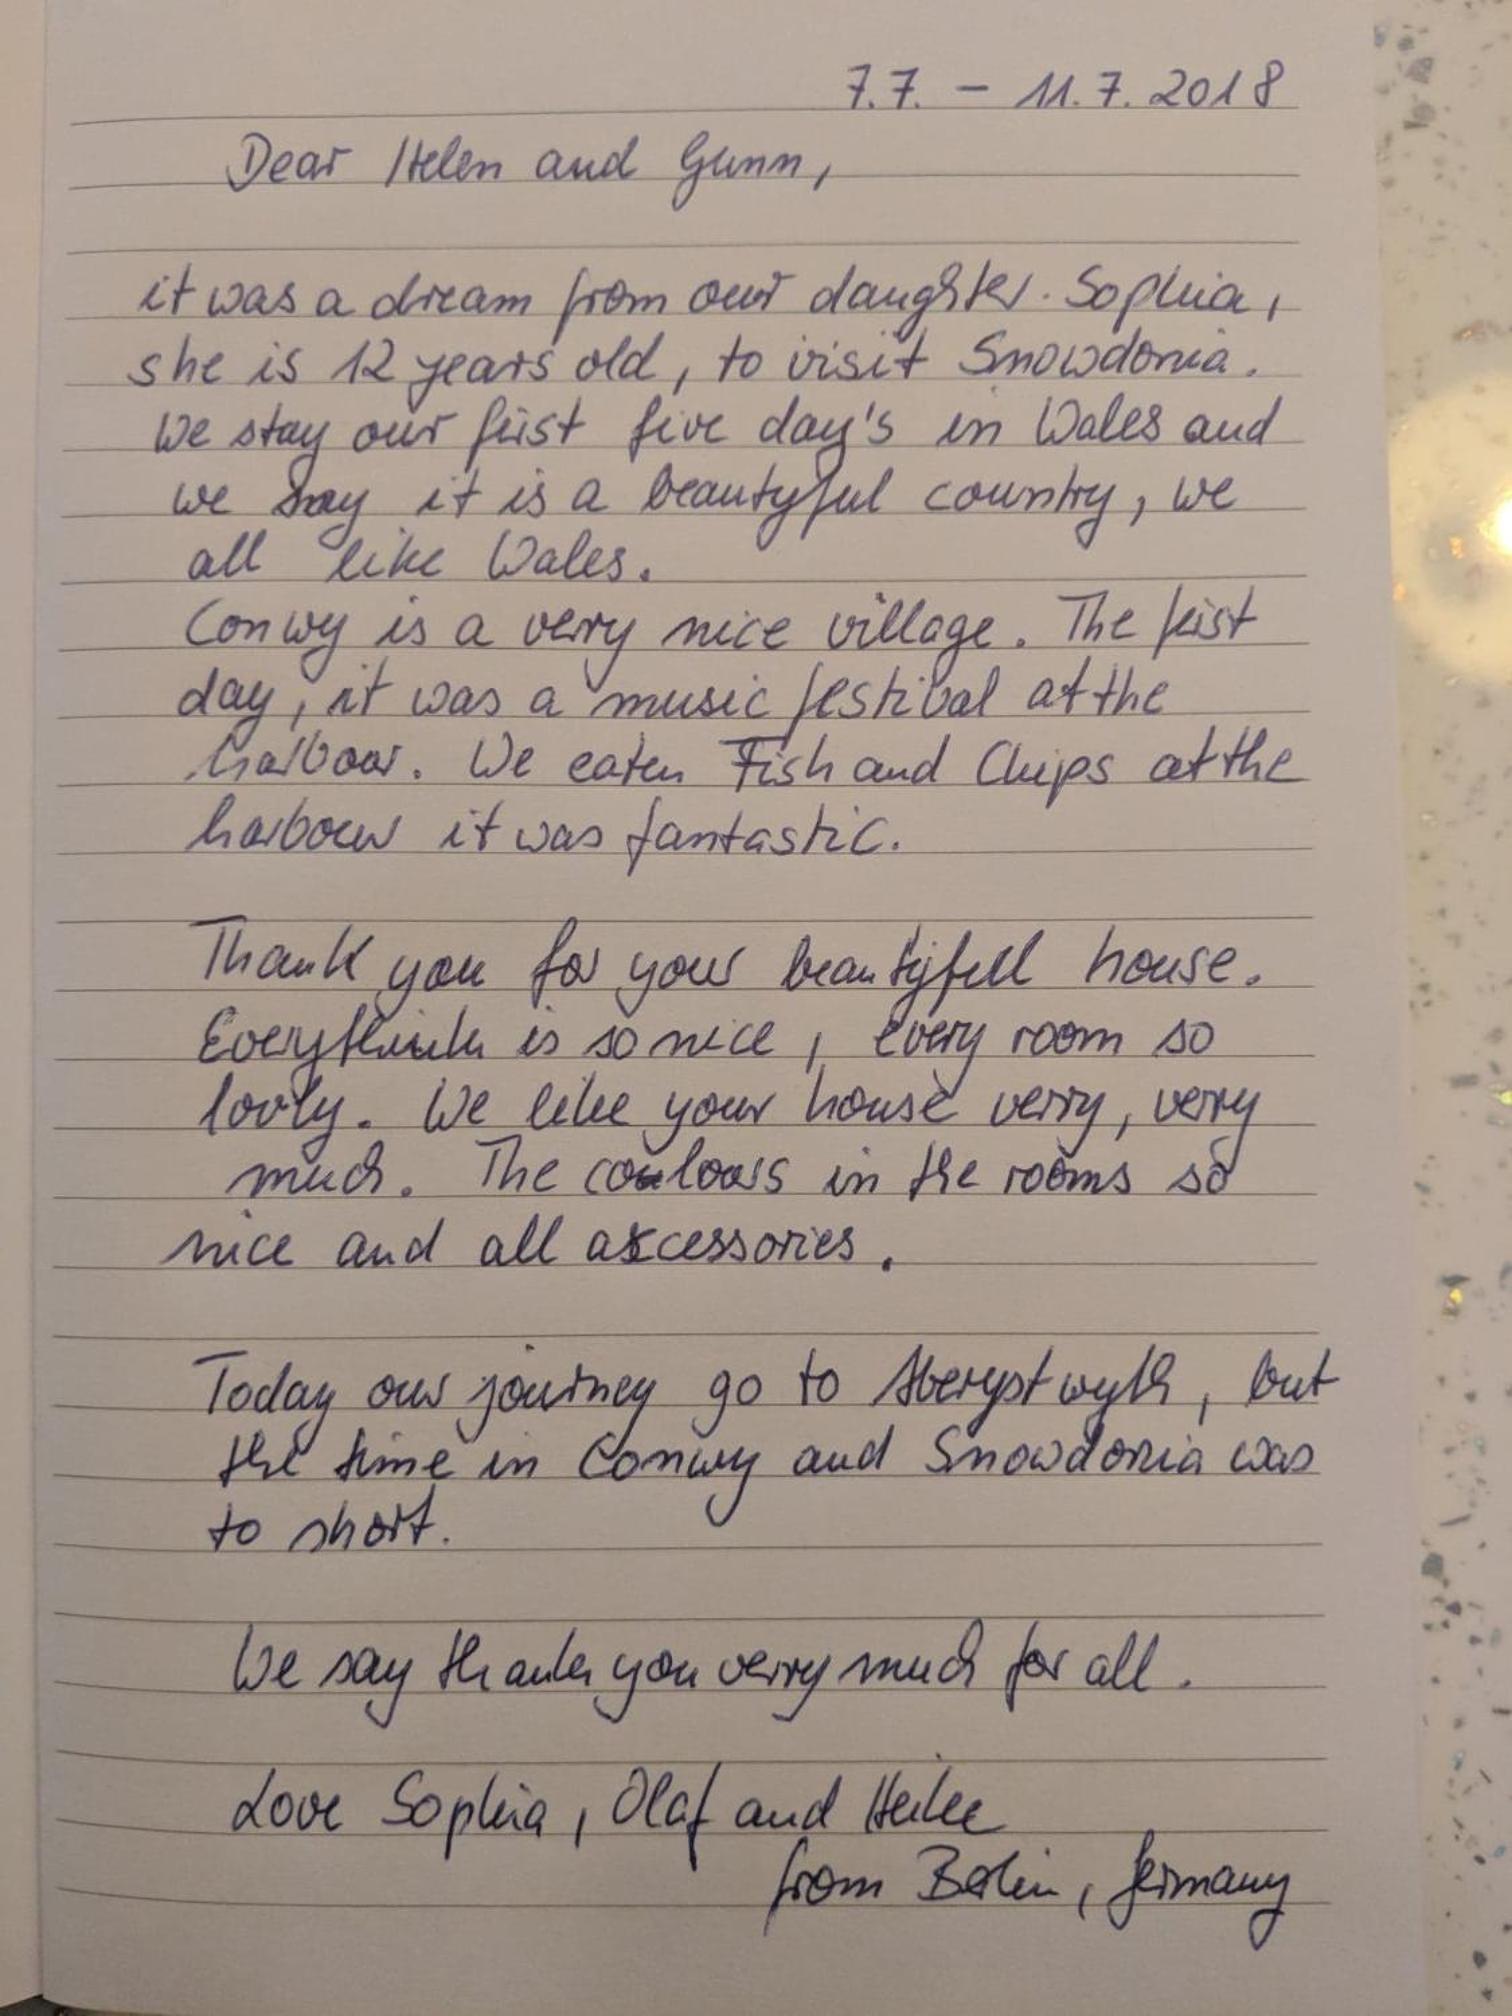 7.7. – 11.7.2018
Dear Helen and Gunn,
it was a dream from our daughter. Sophia,
she is 12 years old, to visit Snowdonia.
We stay our first five day's in Wales and
we say it is a beautyful country, we
all like Wales.
Conwy is a verry nice village. The first
day, it was a music festival at the
harbour. We eaten Fish and Chips at the
harbour it was fantastic.
Thank you for your beautyfull house.
Everythink is so nice, every room so
lovly. We like your house verry, verry
much. The coulours in the rooms so
nice and all accessories.
Today our journey go to Aberystwyth, but
the time in Conwy and Snowdonia was
to short.
We say thank you verry much for all.
Love Sophia, Olaf and Heike
from Berlin, Germany